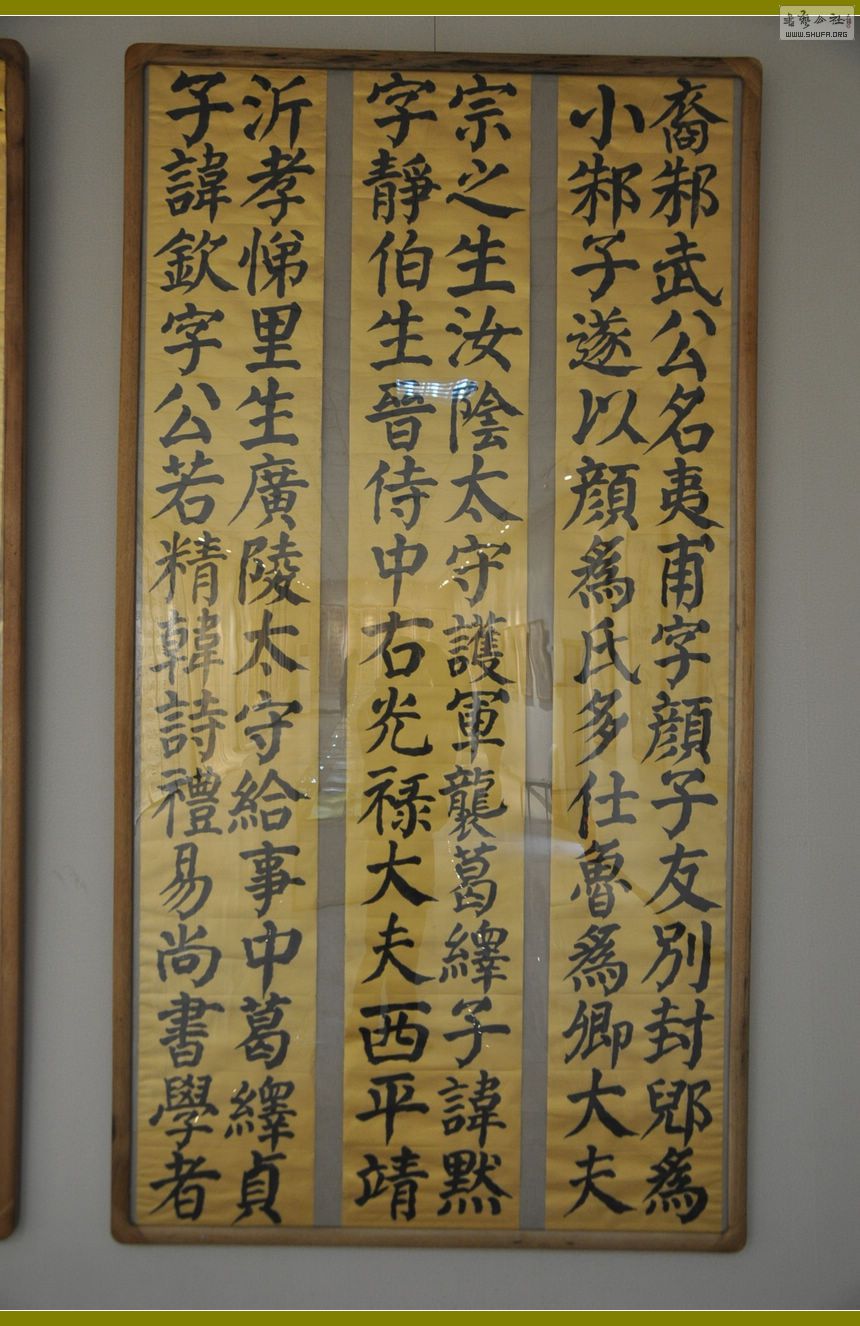 裔邾武公名夷甫字顔子友別封郳爲
小邾子遂以顔爲氏多仕魯爲卿大夫
宗之生汝陰太守護軍襲葛繹子諱默
字靜伯生晉侍中右光祿大夫西平靖
沂孝悌里生廣陵太守給事中葛繹貞
子諱欽字公若精韓詩禮易尚書學者
WWW.SHUFA.ORG